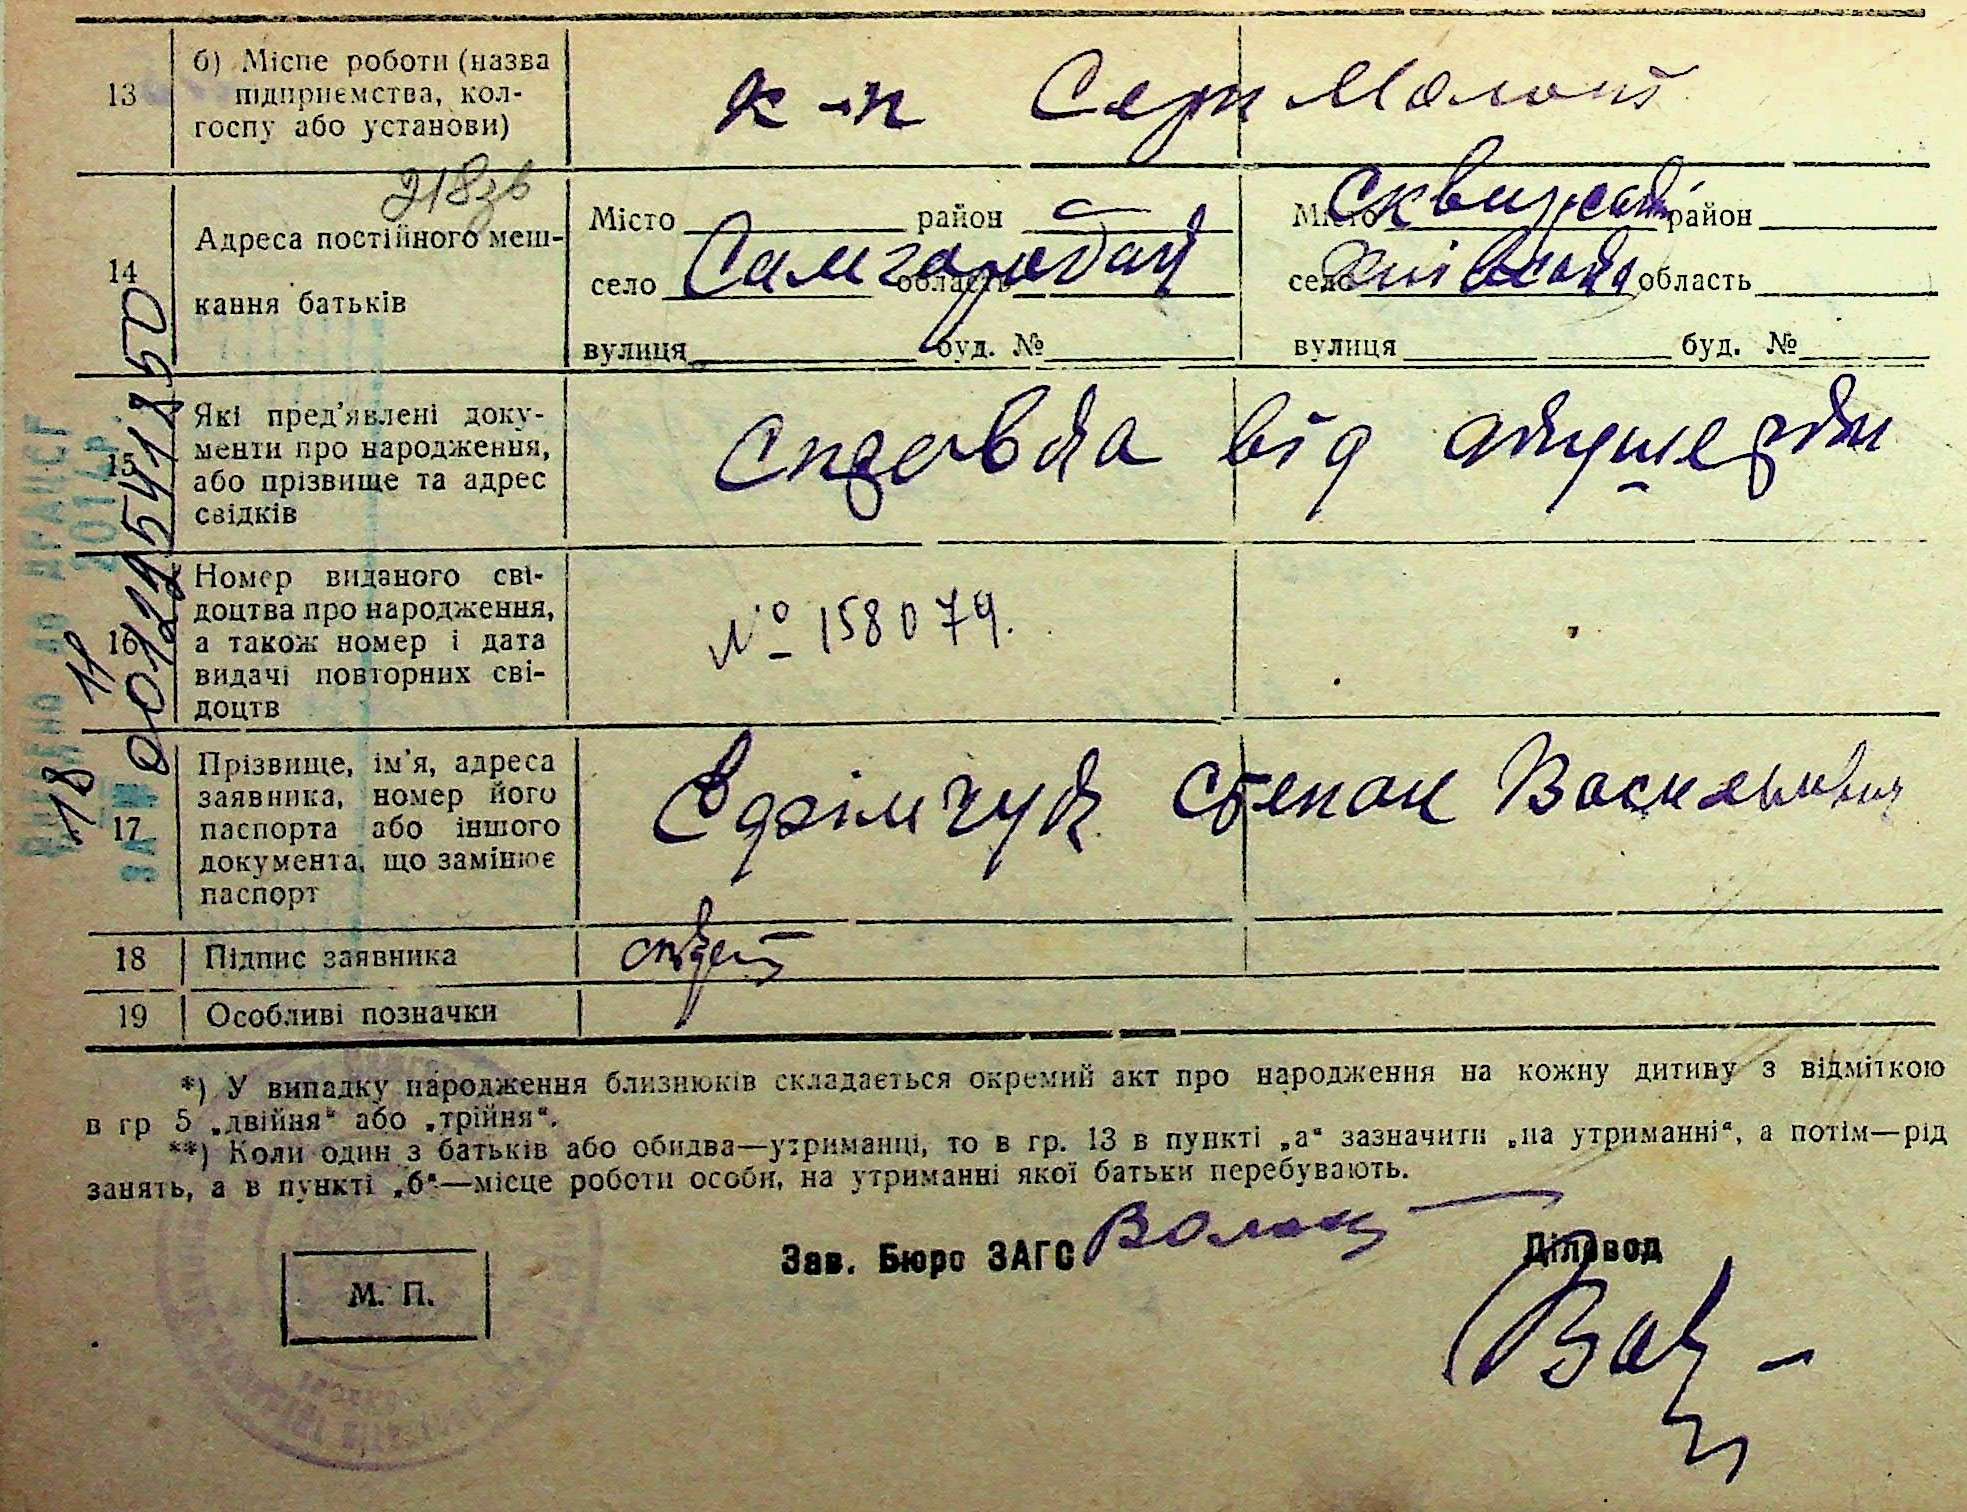 13
б) Місце роботи (назва
підприємства, кол-
госпу або установи)
к-п Серп Молот
218зв
14
Адреса постійного меш-
кання батьків
Місто район с
село Самгородок область
вулиця буд. №
Місто Сквирський район
село Київська область
вулиця буд. №
15
Які пред'явлені доку-
менти про народження,
або прізвище та адрес
свідків
Справка від акушерки
16
Номер виданого сві-
доцтва про народження,
а також номер і дата
видачі повторних сві-
доцтв
№ 158074.
17
Прізвище, ім'я, адреса
заявника, номер його
паспорта або іншого
документа, що замінює
паспорт
Єфімчук Степан Васильович
18
Підпис заявника
19
Особливі позначки
ВНЕСЕНО ДО ДРАЦСГ
18 11 201 р.
ЗА №
*) У випадку народження близнюків складається окремий акт про народження на кожну дитину з відміткою
в гр 5 „двійня“ або „трійня“.
**) Коли один з батьків або обидва—утриманці, то в гр. 13 в пункті „а“ зазначити „на утриманні“, а потім—рід
занять, а в пункті „б“—місце роботи особи, на утриманні якої батьки перебувають.
Зав. Бюро ЗАГС
Діловод
М. П.